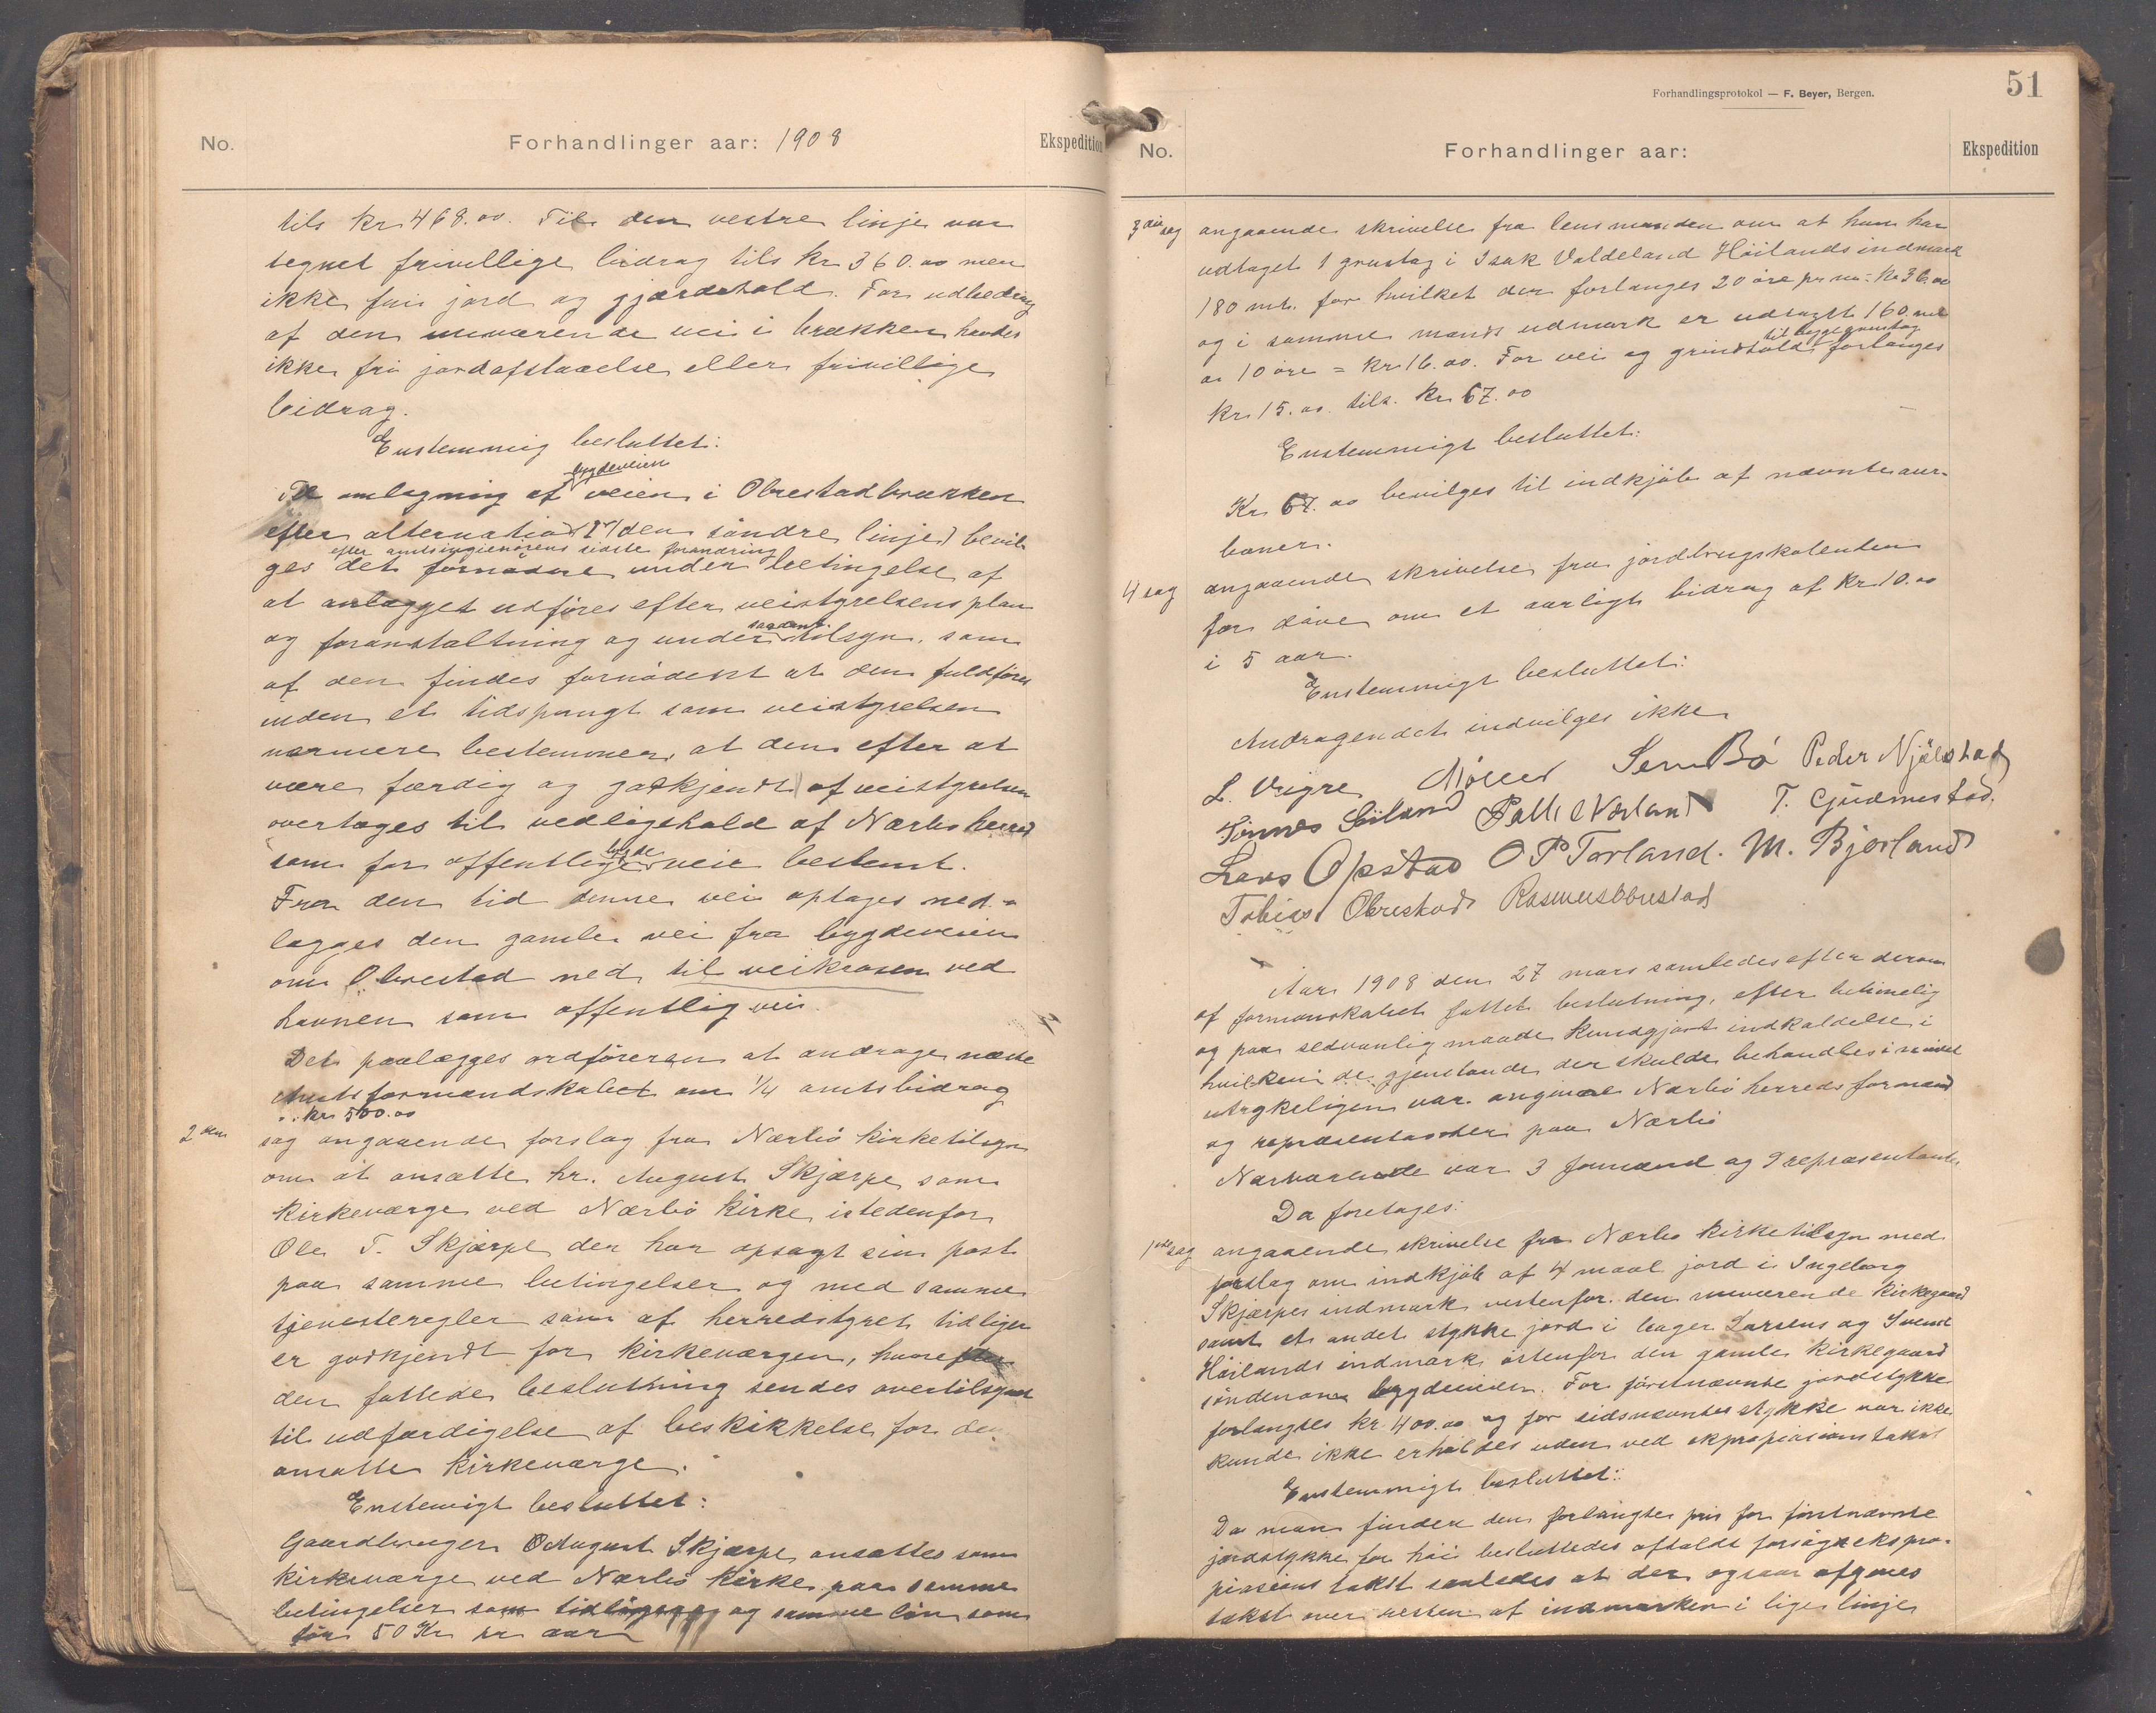 No.
Forhandlinger aar: 1908
Ekspedition
tils kr 468.00. Til den vestre linje var
tegnet frivillige bidrag tils kr 360.00 men
ikke fri jord og gjærdehold. For udbedring
af den nuværende vei i brækken havdes
ikke fri jordafstaaelse eller frivillige
bidrag.
Enstemmig besluttet:
bygdeveien
Til omlægning af veien i Obrestadbrækken
efter alternativ (den söndre linje) bevil-
efter amtsingieniörens sidste forandring
ges det fornødne under betingelse af
at anlægget udføres efter veistyrelsens plan
sagkend.
og foranstaltning og under tilsyn, som
af den findes fornødent at den fuldføres
inden et tidspungt som veistyrelsen
nærmere bestemmer, at den efter at
være færdig og godkjendt af veistyrelsen
overtages til vedligehold af Nærbø herred
bygde
som for offentlige veie bestemt.
Fra den tid denne vei optages ned-
lægges den gamle vei fra bygdeveien
om Obrestad ned til veikrosen ved
havnen som offentlig vei.
Det paalægges ordføreren at andrage næste
Amtsformandskabet om 1/4 amtsbidrag
kr 500.00
2den sag angaaende forslag fra Nærbö kirketilsyn
om at ansætte hr. August Skjærpe som
kirkeværge ved Nærbö kirke istedenfor
Ole T. Skjærpe der har opsagt sin post
paa samme betingelser og med samme
tjenesteregler som af herredstyret tidligere
er godkjendt for kirkeværgen, hvorefter
den fattede beslutning sendes overtilsynet
til udfærdigelse af beskikkelse for den
ansatte kirkeværge.
Enstemigt besluttet:
Gaardbruger August Skjærpe ansættes som
kirkeværge ved Nærbö kirke paa samme
betingelser som tidligere og samme løn som
før 50 Kr pr aar
Forhandlingsprotokol — F. Beyer, Bergen.
51
No.
Forhandlinger aar:
Ekspedition
3die sag angaaende skrivelse fra lensmanden om at han har
udtaget 1 grustag i Isak Valdeland Höilands indmark
180 mt. for hvilket der forlanges 20 øre pr m = kr 36.00
og i samme mands udmark er udtaget 160 mt
til begge grustag
a 10 øre = kr 16.00. For vei og grindhold forlanges
kr 15.00 tils. kr 67.00
Enstemmigt besluttet:
Kr 67.00 bevilges til indkjøb af nævnte aur-
baner.
4 sag angaaende skrivelse fra jordbrugskolenden
for døve om et aarligt bidrag af kr 10.00
i 5 aar.
Enstemmigt besluttet:
Andragendet indvilges ikke
L. Vigre Möller Sem Bö Peder Njölstad
Tönnes Höiland Palle Nærland T. Gudmestad.
Lars Opstad O P Torland. M. Bjorland
Tobias Obrestad Rasmus Obrestad
Aar 1908 den 27 mars samledes efter derom
af formanskabet fattet beslutning, efter betimelig
og paa sedvanlig maade kundgjort indkaldelse i
hvilken de gjenstande der skulde behandles i mødet
utrykeligen var angivne Nærbö herreds formænd
og repræsentanter paa Nærbö
Nærværende var 3 formænd og 9 repræsentanter
Da foretages:
1ste sag angaaende skrivelse fra Nærbø kirketilsyn med
forslag om indkjøb af 4 maal jord i Ingeborg
Skjærpes indmark vestenfor den nuværende kirkegaard
samt et andet stykke jord i bager Larsens og Svend
Höilands indmark østenfor den gamle kirkegaard
søndenom bygdeveien. For førstnævnte jordstykke
forlangtes kr. 400.00 og for sidsnævnte stykke var ikke
kunde ikke erholdes uden ved ekpropiasionstakst
Enstemmigt besluttet:
Da man finder den forlangte pris for førstnævnte
jordstykke for høi besluttedes afholdt forsøgsekspro-
piasions takst saaledes at der ogsaa afgives
takst over resten af indmarken i lige linje